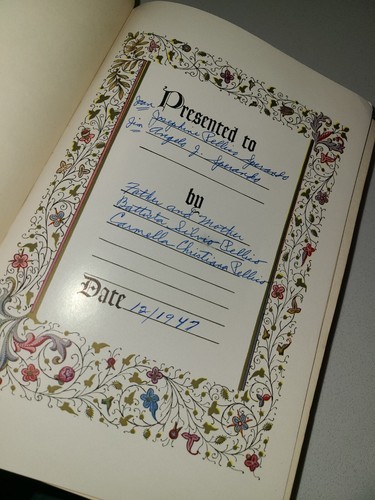 Presented to
Joan Josephine Pellico Speranko
Jim Angelo J. Speranko
by
Father and Mother
Battista Silvio Pellico
Carmella Christiana Pellico
Date 12/1947